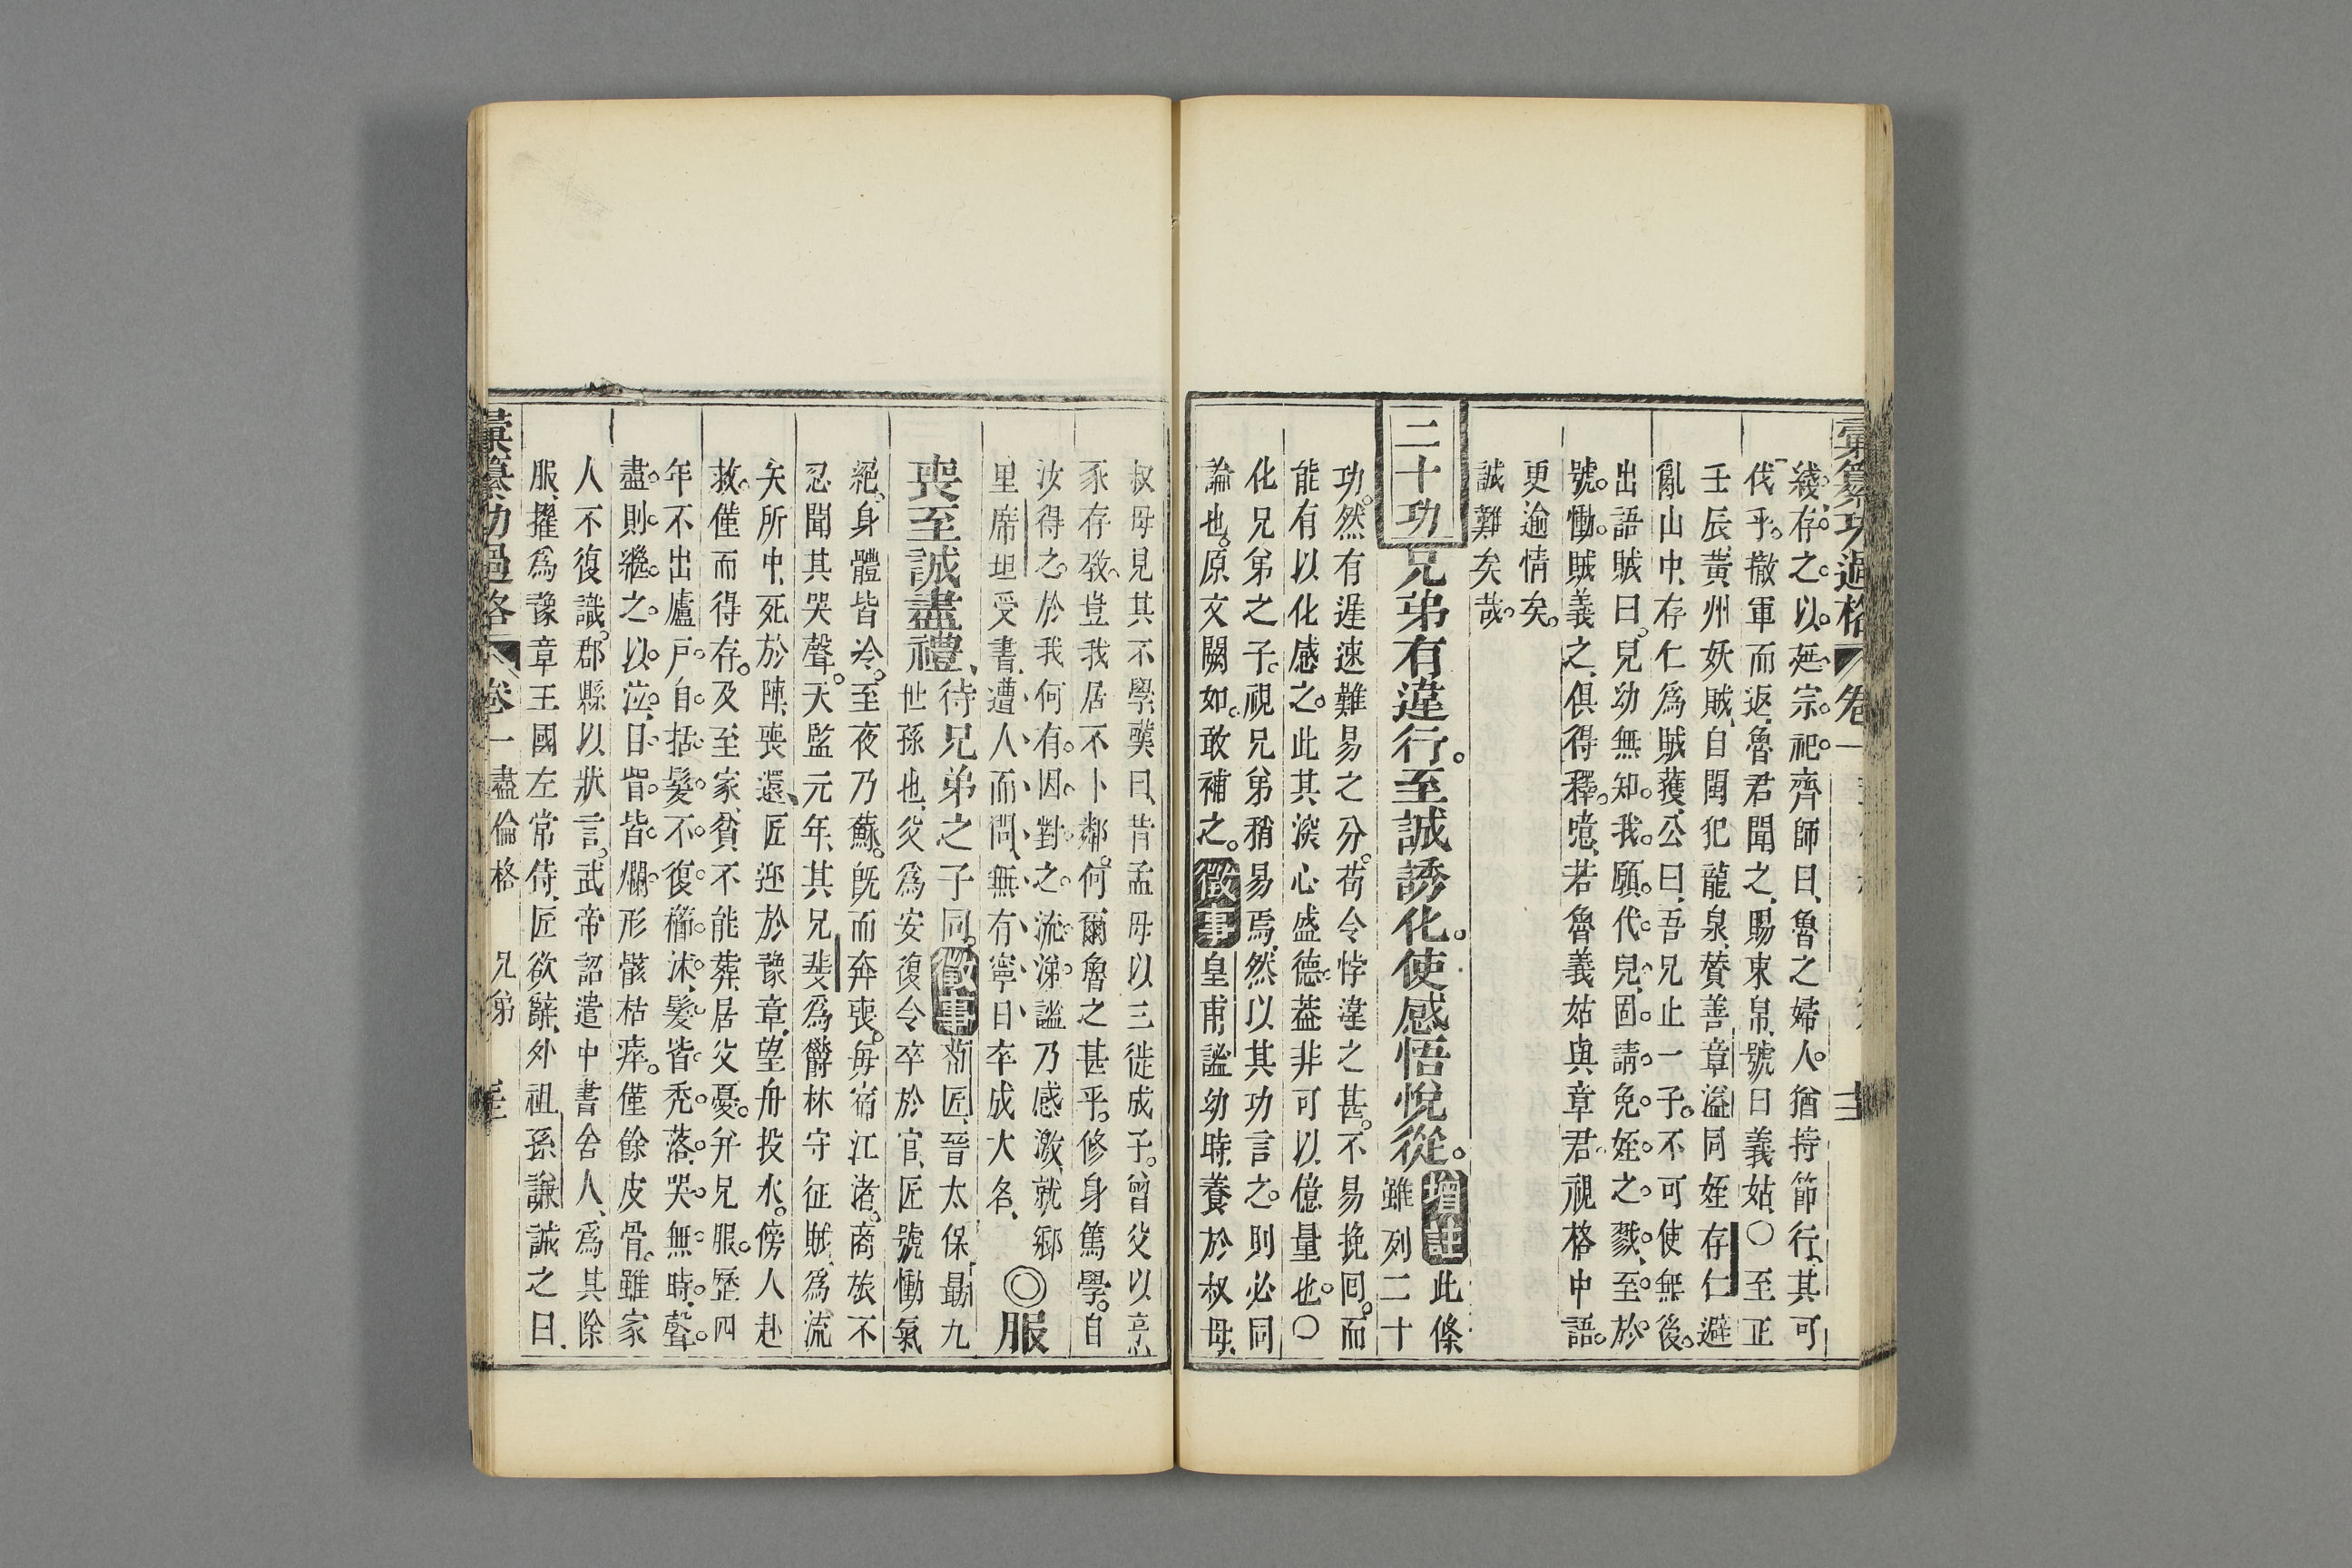 彙纂功過格 卷一
綫存之以延宗祀齊師曰魯之婦人猶持節行其可
伐乎撤軍而返魯君聞之賜束帛號曰義姑〇至正
壬辰蘄黃州妖賊自閩犯龍泉贊善章溢同姪存仁避
亂山中存仁為賊獲公曰吾兄止一子不可使無後
出語賊曰兒幼無知我願代兒固請免姪之戮至於
號慟賊義之俱得釋噫若魯義姑與章君視格中語
更逾情矣
誠難矣哉
二十功
兄弟有違行至誠誘化使感悟悅從
增註
此條
雖列二十
功然有遲速難易之分苟令悖違之甚不易挽回而
能有以化感之此其深心盛德葢非可以億量也〇
化兄弟之子視兄弟稍易焉然以其功言之則必同
論也原文闕如敢補之 徵事 皇甫謐幼時養於叔母
叔母見其不學歎曰昔孟母以三徙成子曾父以烹
豕存教豈我居不卜鄰何爾魯之甚乎修身篤學自
汝得之於我何有因對之流涕謐乃感激就鄉
里席坦受書遭人而問無有寧日卒成大名
◎服
喪至誠盡禮
待兄弟之子同 徵事 荀匠晉太保最九
世孫也父為安復令卒於官匠號慟氣
絕身體皆冷至夜乃蘇旣而奔喪每宿江渚商旅不
忍聞其哭聲天監元年其兄斐為鬱林守征賊為流
矢所中死於陣喪還匠迎於豫章望舟投水傍人赴
救僅而得存及至家貧不能葬居父憂幷兄服歷四
年不出廬戶自括髮不復櫛沐髮皆禿落哭無時聲
盡則繼之以泣目眥皆爛形骸枯瘁僅餘皮骨雖家
人不復識郡縣以狀言武帝詔遣中書舍人為其除
服擢為豫章王國左常侍匠欲辭外祖孫謙誡之曰
彙纂功過格 卷一 盡倫格 兄弟